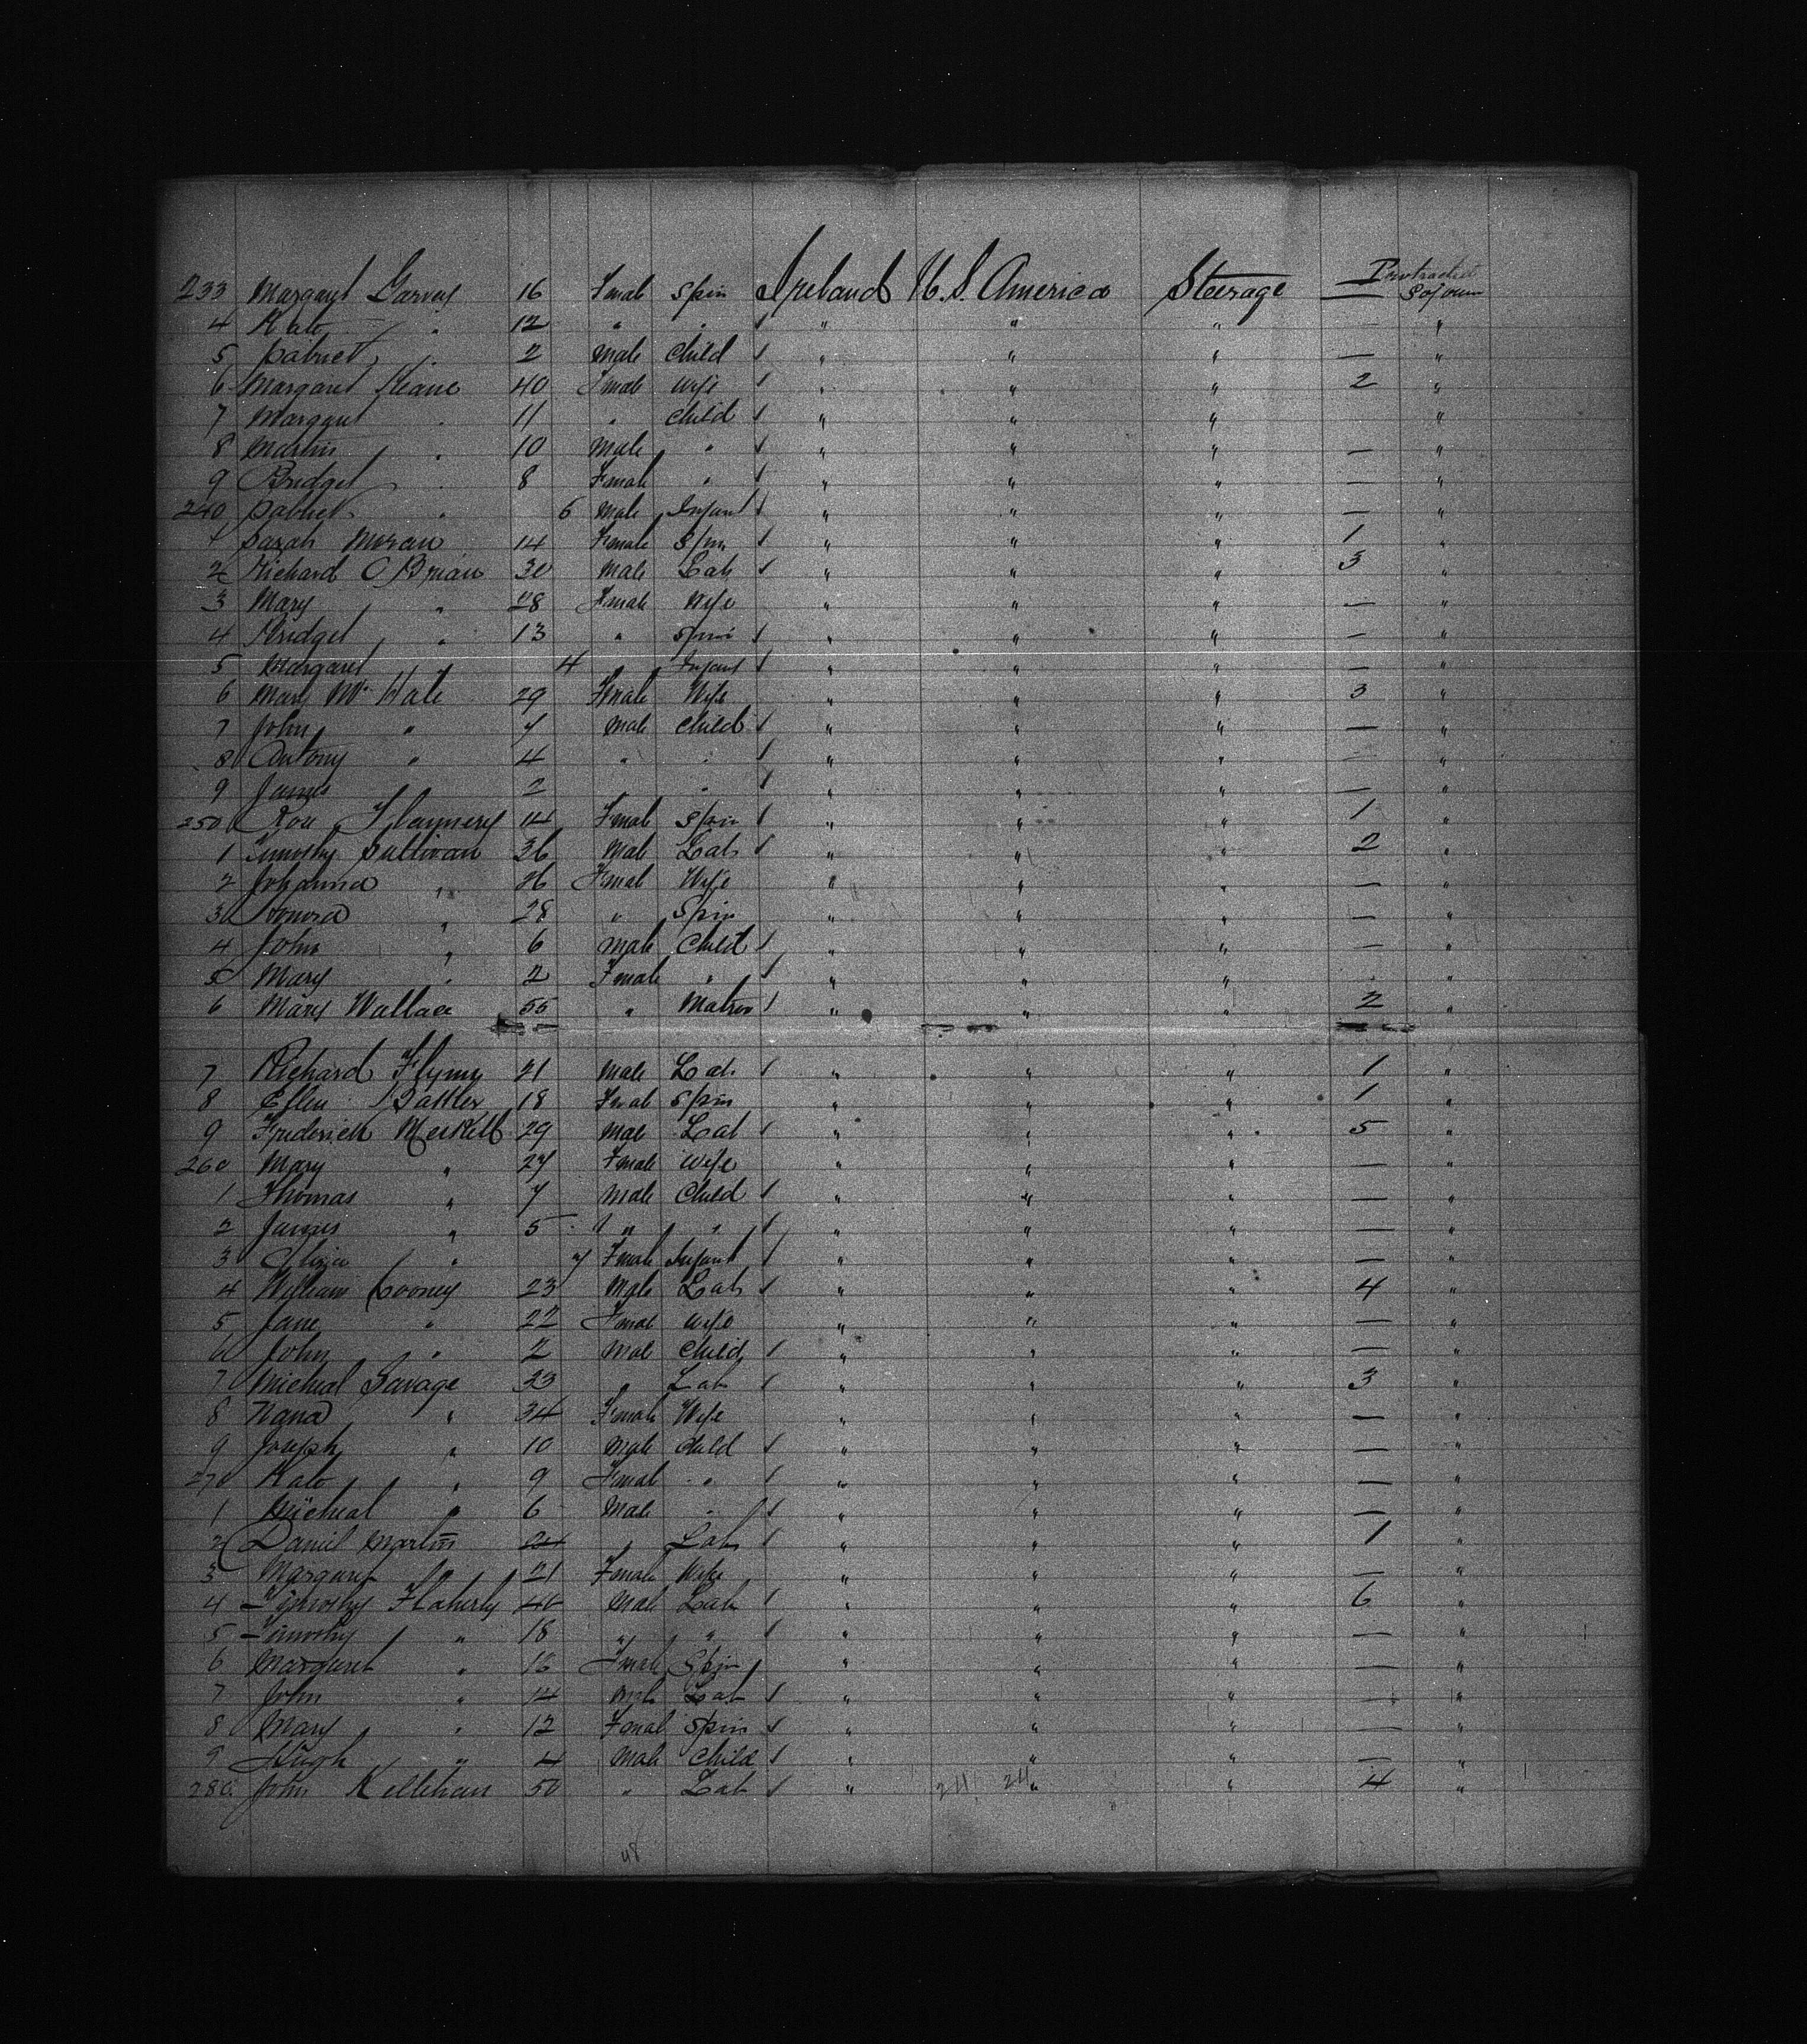 Protracted
233 Margaret Garvey 16 Female Spin Ireland U.S. America Steerage — Sojourn
4 Kate " 12 " " " " " — "
5 Patrick " 2 Male Child " " " — "
6 Margaret Keane 40 Female Wife " " " 2 "
7 Margaret " 11 " Child " " " "
8 Martin " 10 Male " " " " — "
9 Bridget " 8 Female " " " " — "
240 Patrick " 6 Male Infant " " " — "
1 Sarah Moran 14 Female Spin " " " 1 "
2 Richard O Brian 30 Male Lab " " " 3 "
3 Mary " 28 Female Wife " " " — "
4 Bridget " 13 " Spin " " " — "
5 Margaret 4 " Infant " " " — "
6 Mary Mc Hale 29 Female Wife " " " 3 "
7 John " 7 Male Child " " " — "
8 Antony " 4 " " " " " — "
9 James 2 " " " " — "
250 Rose Flannery 14 Female Spin " " " 1 "
1 Timothy Sullivan 36 Male Lab " " " 2 "
2 Johanna " 26 Female Wife " " " — "
3 Honora " 28 " Spin " " " — "
4 John " 6 Male Child " " " — "
5 Mary " 2 Female " " " " — "
6 Mary Wallace 55 " Matron " " " 2 "
7 Richard Flynn 21 Male Lab " " " 1 "
8 Ellen Battler 18 Female Spin " " " 1 "
9 Frederick Meskell 29 Male Lab " " " 5 "
260 Mary " 27 Female Wife " " " — "
1 Thomas " 7 Male Child " " " — "
2 James " 5 " " " " " — "
3 Eliza " 7 Female Infant " " " — "
4 William Cooney 23 Male Lab " " " 4 "
5 Jane " 22 Female Wife " " " — "
6 John " 2 Male Child " " " — "
7 Micheal Savage 33 " Lab " " " 3 "
8 Nana " 34 Female Wife " " " — "
9 Joseph " 10 Male Child " " " — "
270 Kate " 9 Female " " " " — "
1 Micheal " 6 Male " " " " — "
2 Daniel Martin 24 " Lab " " " 1 "
3 Margaret " 21 Female Wife " " " — "
4 Timothy Flaherty 40 Male Lab " " " 6 "
5 Timothy " 18 " " " " " — "
6 Margaret " 16 Female Spin " " " — "
7 John " 14 Male Lab " " " — "
8 Mary " 12 Female Spin " " " — "
9 Hugh " 4 Male Child " " " — "
280 John Kellehan 50 " Lab " 211 211 " " 4 "
48